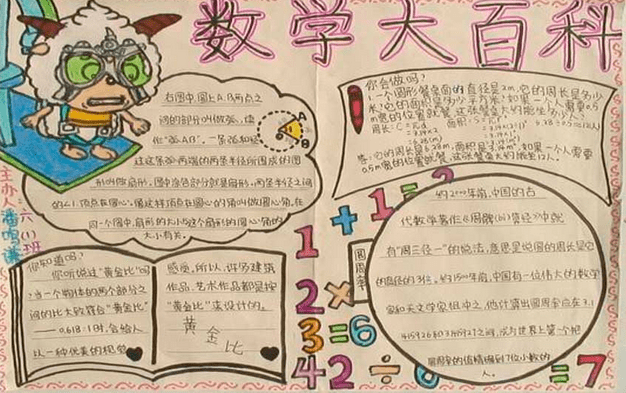 数学大百科
主办人：六(1)班
右图中,圆上A、B两点之
间的部分叫做弧,读
作"弧AB",一条弧和经
过这条弧两端的两条半径所围成的图
形叫做扇形。图中涂色部分就是扇形。两条半径之间
的∠1,顶点在圆心。像这样顶点在圆心的角叫做圆心角。在
同一个圆中,扇形的大小与这个扇形的圆心角的
大小有关。
A
B
你会做吗?
1.一个圆形餐桌面的直径是2m,它的周长是多少
米?它的面积是多少平方米?如果一个人需要0.5
m宽的位置就餐,这张餐桌大约能坐多少人?
答:它的周长是6.28m,面积是3.14m²,如果一个人需要
0.5m宽的位置就餐,这张餐桌大约能坐12人。
你知道吗?
你听说过"黄金比"吗
?当一个物体的两个部分之
间的比大致符合"黄金比"
——0.618:1时,会给人
以一种优美的视觉
感受。所以,许多建筑
作品、艺术作品都是按
"黄金比"来设计的。
黄金比
1+1=2
2×
3=6
42÷6=7
圆周率
约2000年前,中国的古
代数学著作《周髀算经》中就
有"周三径一"的说法,意思是说圆的周长是它
的直径的3倍。约1500年前,中国有一位伟大的数学
家和天文学家祖冲之。他计算出圆周率应在3.1
415926和3.1415927之间,成为世界上第一个把
圆周率的值精确到7位小数的
人。